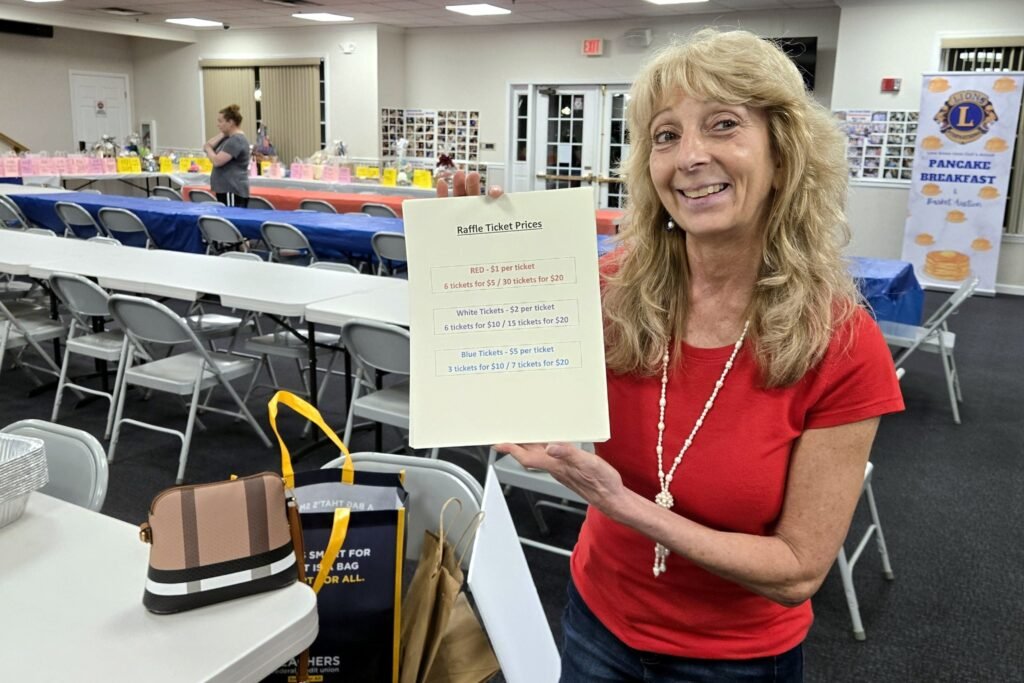 EXIT
LIONS
L
PANCAKE
BREAKFAST
&
Basket Auction
Raffle Ticket Prices
RED - $1 per ticket
6 tickets for $5 / 30 tickets for $20
White Tickets - $2 per ticket
6 tickets for $10 / 15 tickets for $20
Blue Tickets - $5 per ticket
3 tickets for $10 / 7 tickets for $20
A BAG THAT'S SM
S SMART FOR
T IS A BAG
T FOR ALL.
EACHERS
federal credit union